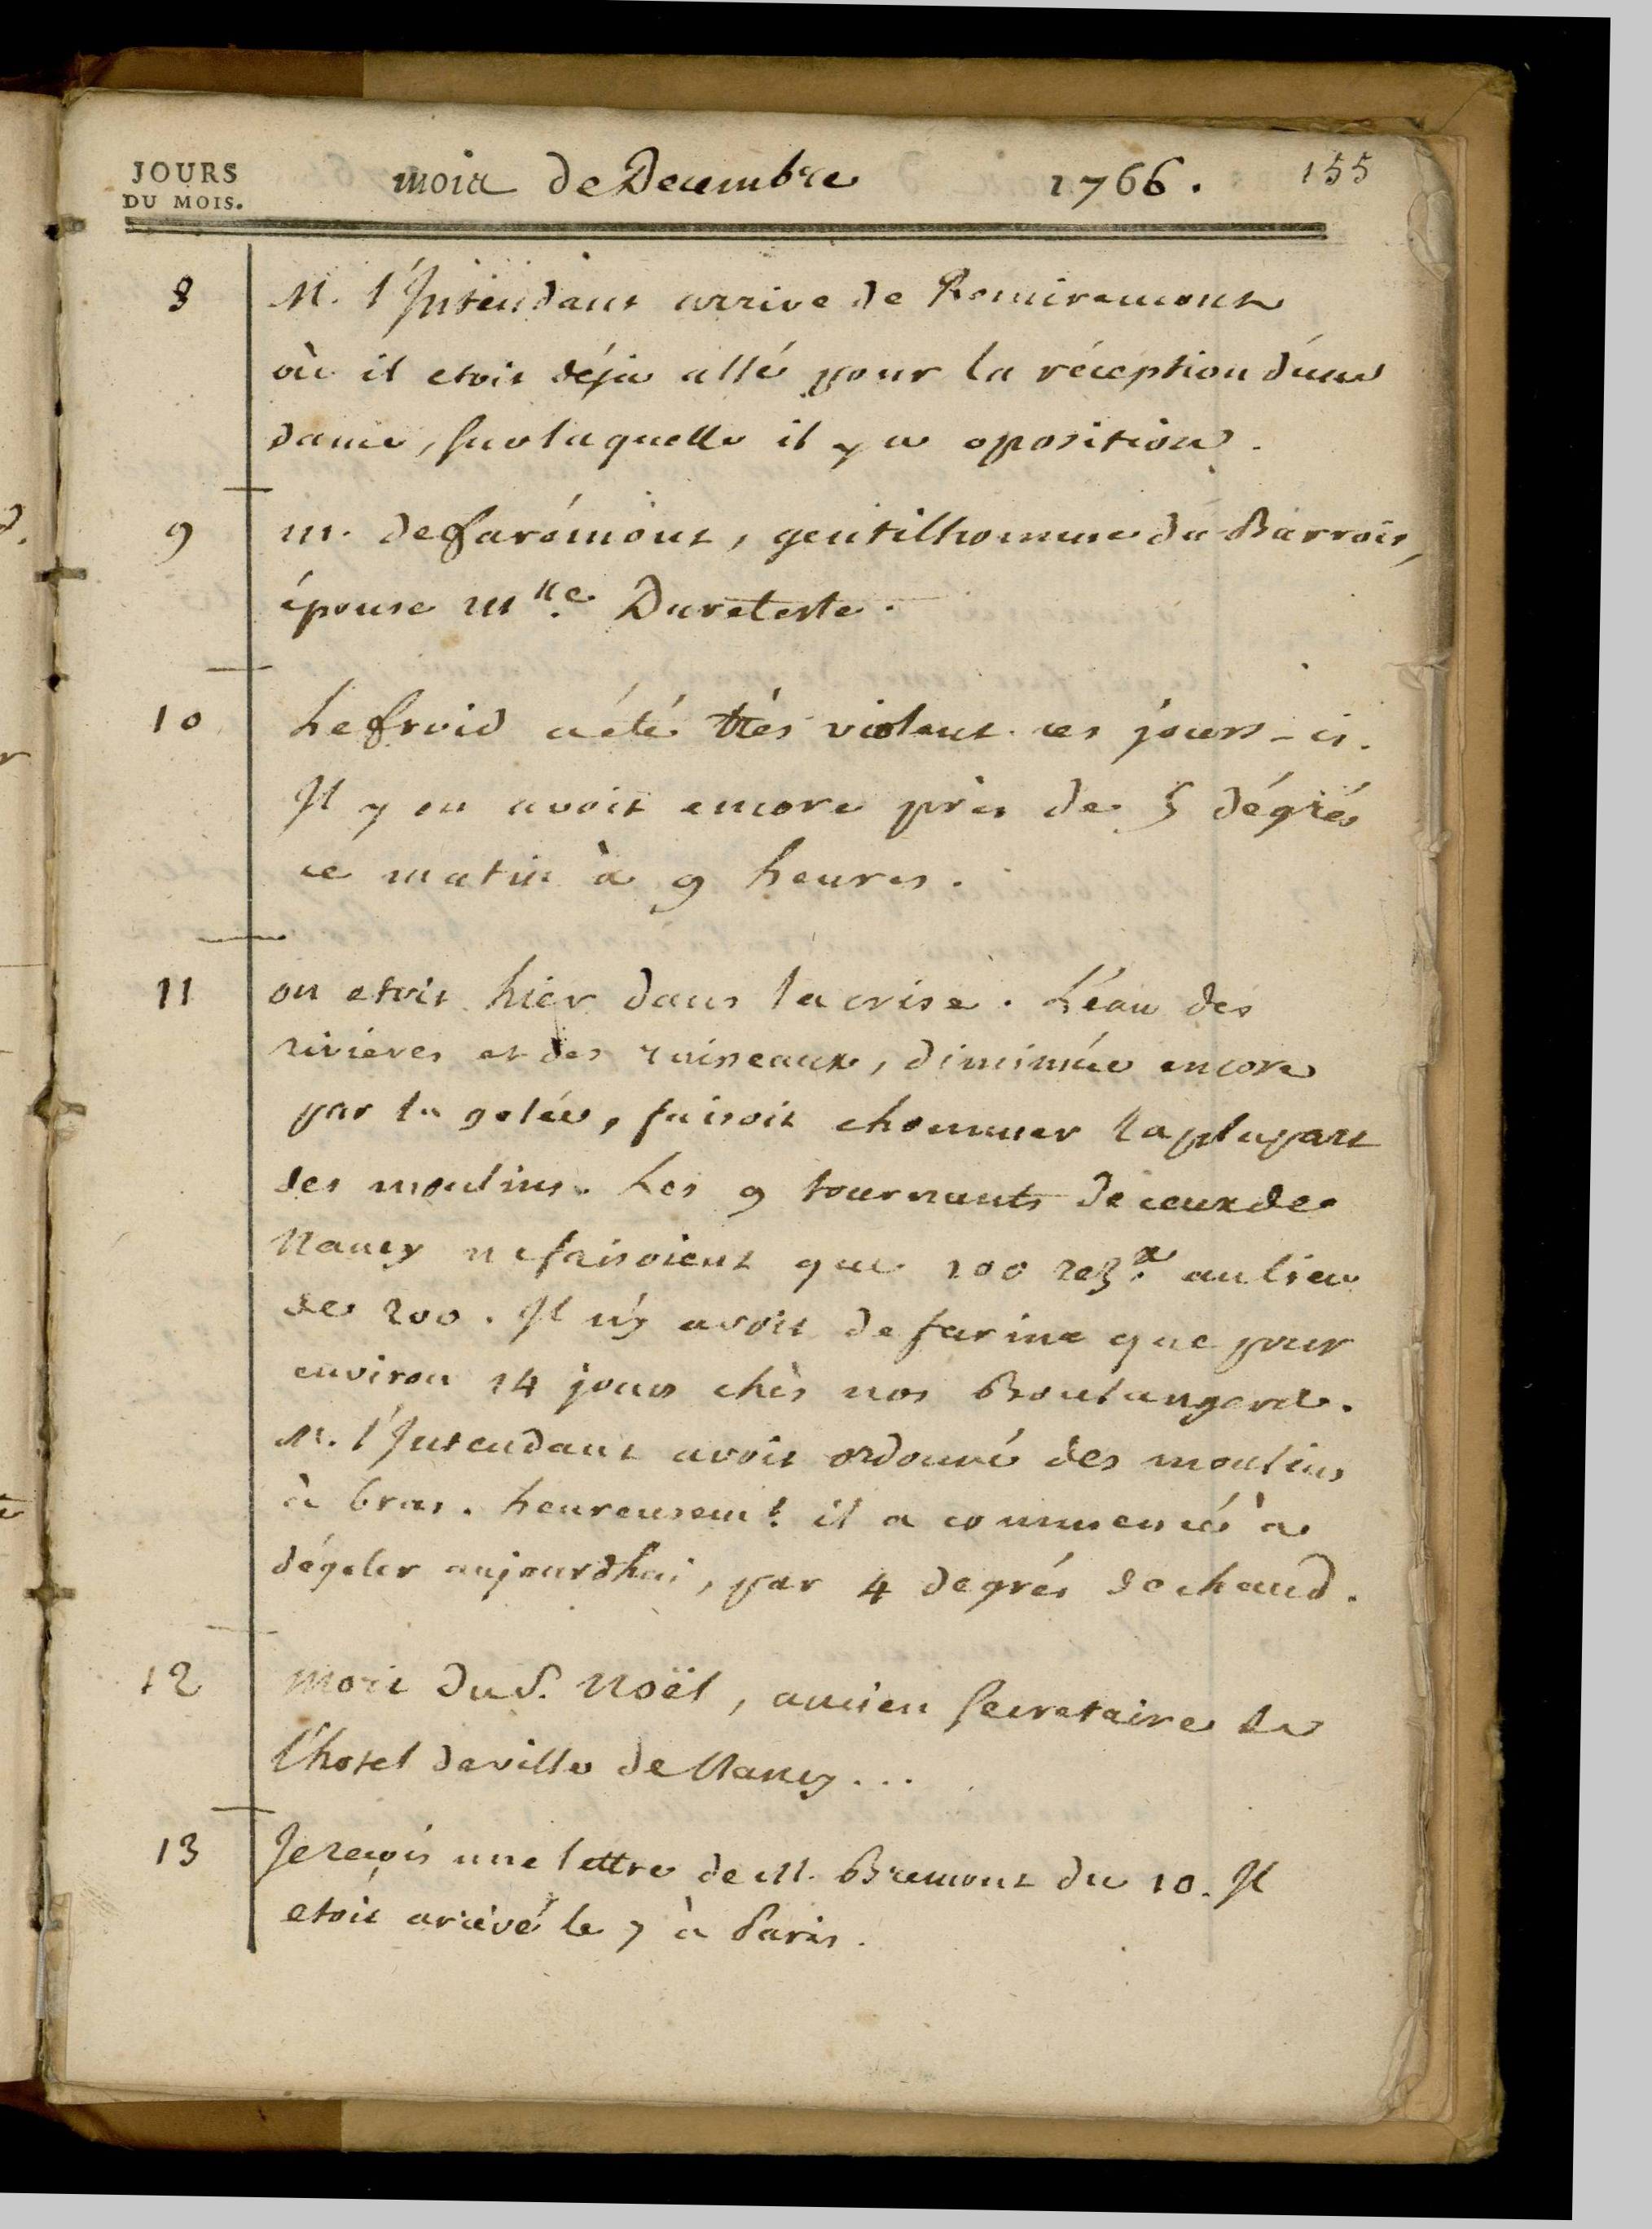 JOURS
DU MOIS.
mois de Decembre 1766. 155
8 M. l'Intendant arrive de Remiremont
où il etoit déja allé pour la réception d'une
dame, sur laquelle il y a oposition.
9 m. de farémont, gentilhomme du Barrois,
épouse mlle. Dureteste.
10 Le froid a été très violent ces jours-ci.
Il y en avoit encore près de 5 dégrés
ce matin à 9 heures.
11 on etoit hier dans la crise. L'eau des
rivières et des ruisseaux, diminuée encore
par la gelée, faisoit chommer la plupart
des moulins. Les 9 tournants de ceux de
Nancy ne faisoient que 100 rezx. au lieu
de 200. Il n'y avoit de farine que pour
environ 14 jours chès nos Boulangers.
M. l'Intendant avoit ordonné des moulins
à bras. heureusemt. il a commencé à
dégeler aujourdhui, par 4 degrés de chaud.
12 Mort du S. Noël, ancien secretaire de
l'hotel de ville de Nancy...
13 Je reçois une lettre de M. Bremont du 10. Il
etoit arrivé le 7 à Paris.